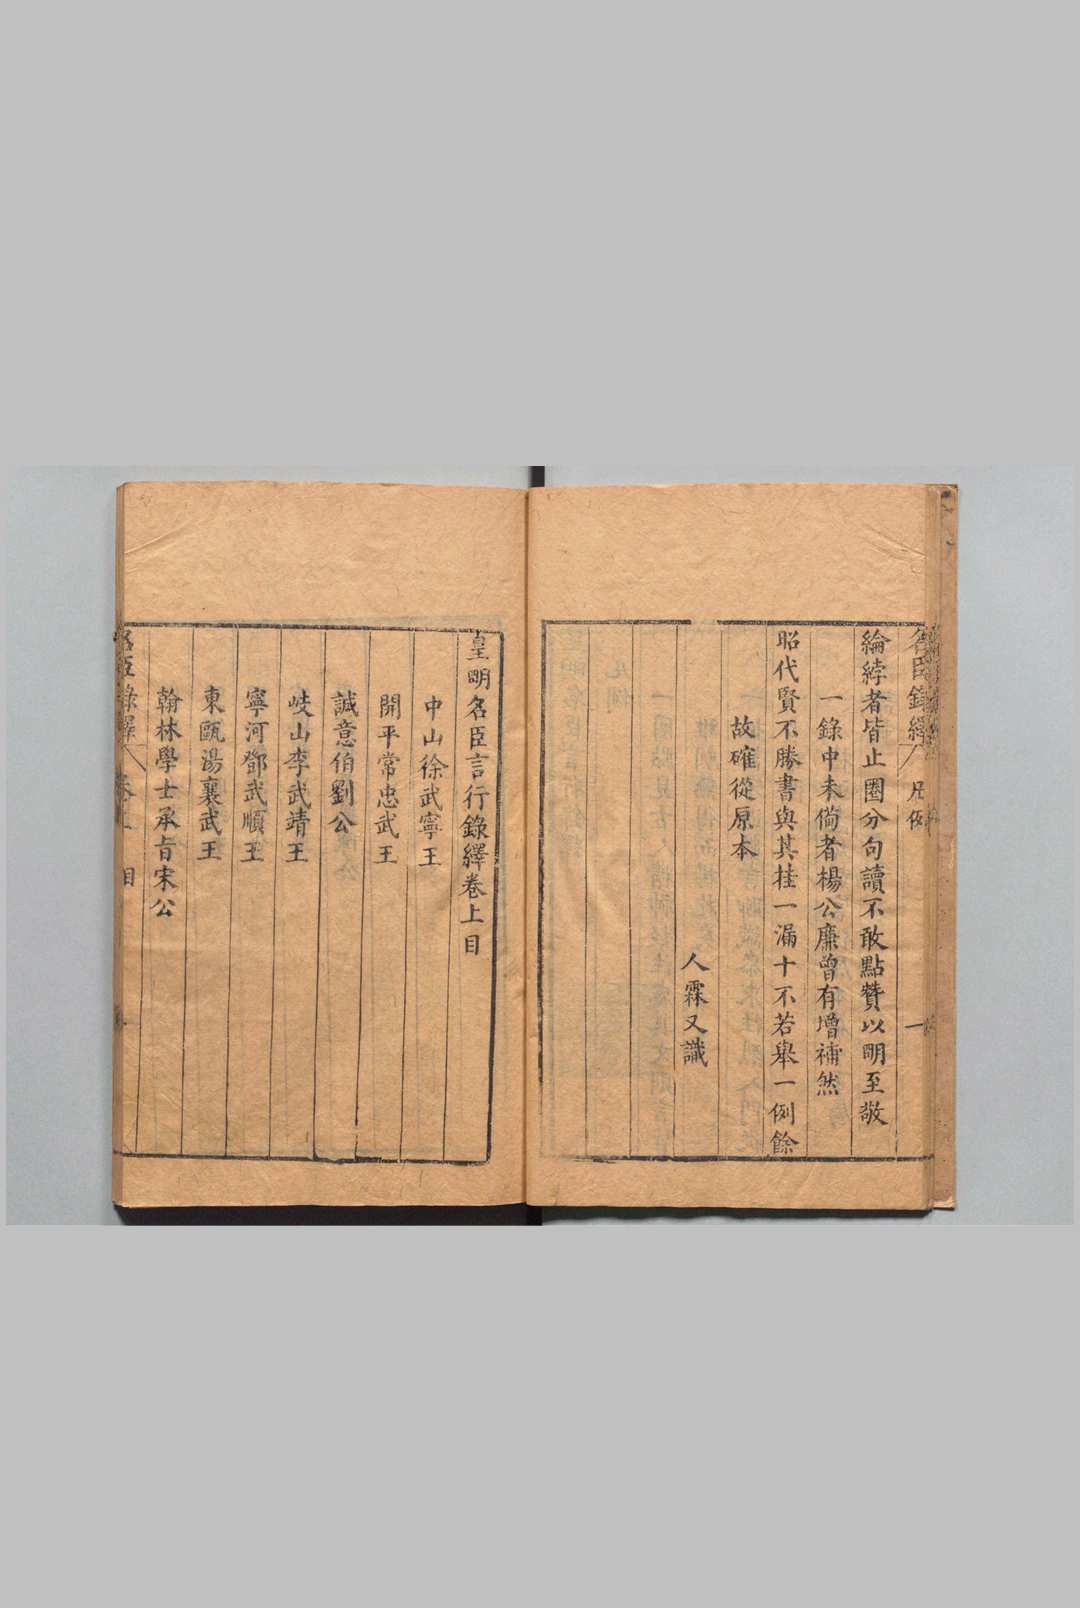 名臣錄繹 凡例 一
綸綍者皆止圈分句讀不敢點贊以明至敬
一錄中未備者楊公廉曾有增補然
昭代賢不勝書與其挂一漏十不若舉一例餘
故確從原本
人霖又識
皇明名臣言行錄繹卷上目
中山徐武寧王
開平常忠武王
誠意伯劉公
岐山李武靖王
寧河鄧武順王
東甌湯襄武王
翰林學士承旨宋公
名臣錄繹 卷上 目